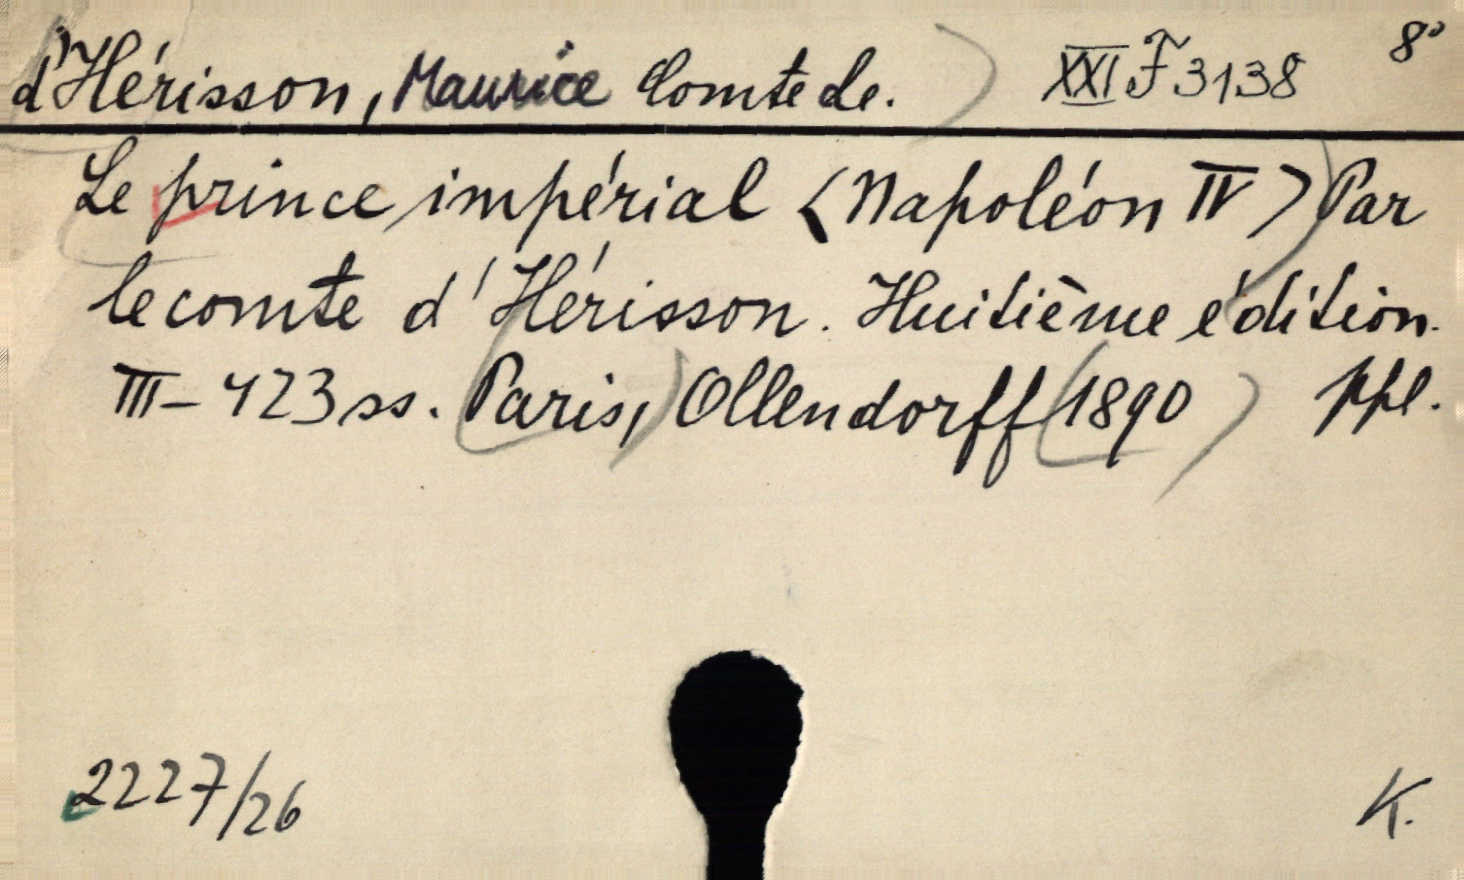 d'Hérisson, Maurice Comte de. XXI F 3138 8°
Le prince impérial <Napoléon IV> Par
le comte d'Hérisson. Huitième édition.
III-423 ss. Paris, Ollendorff 1890 ppl.
2227/26 K.